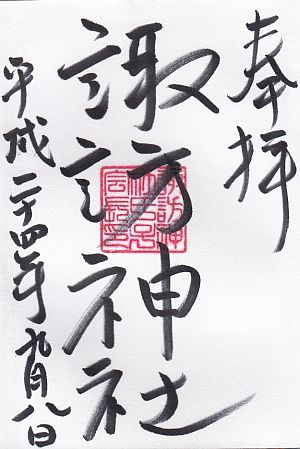 奉拝
諏訪神社
平成二十四年九月八日